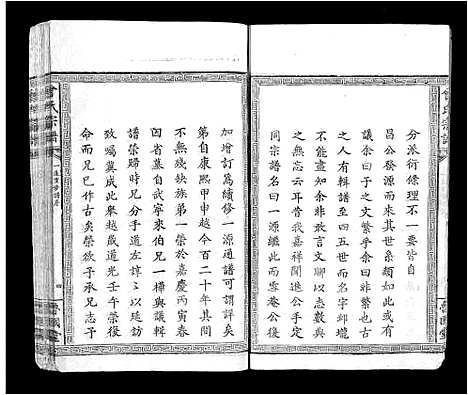 曾氏宗譜
分派衍條理不一要皆自
昌公發源而來其世系頻如此或
議余曰子之文繁乎余曰非繁也古
之人有輯譜至四五世而名字邱壠
不能盡知余非敢言文聊以志數典
之無忘云耳昔我嘉祥聞進公手定
同宗譜名曰一源繼此而雲菴公後
加增訂篇續修一源通譜可謂詳矣
第自康熙甲申越今百二十年其間
不無殘缺族弟一榮於嘉慶丙寅春
因省墓自武寧來伯兄一樺與議輯
譜榮歸時兄弟於道左諄諄以延訪
致囑冀成此舉越歲道光壬午榮復
命而兄已作古矣榮欲子承兄志予
曾氏宗譜